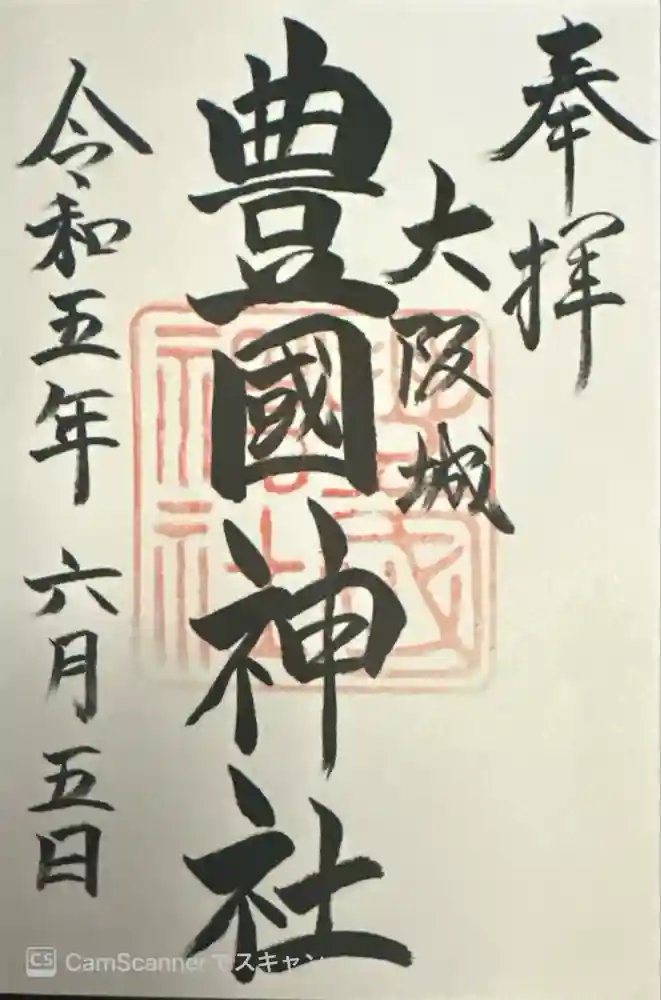 奉拝
大阪城
豊國神社
令和五年 六月五日
CS CamScannerでスキャン